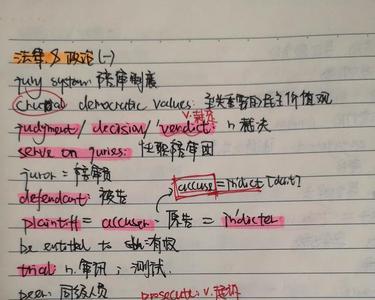 法律 & 政治 (一)
jury system 陪审制度
crucial democratic values: 至关重要的民主价值观
v. 裁决
judgment / decision / verdict: n 裁决
serve on juries: 任职陪审团
juror = 陪审员
defendant: 被告 accuse = indict [daɪt]
plaintiff = accuser 原告 = indicter
be entitled to 有权
trial: n. 审讯; 测试.
peer: 同级人员 prosecute: v. 起诉